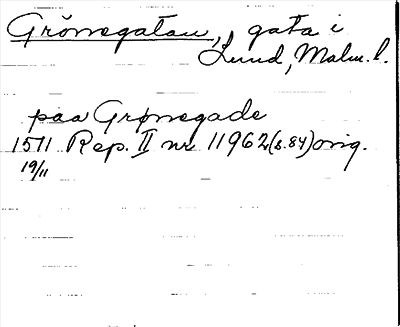 Grönegatan, gata i
Lund, Malm. l.
paa Grønegade
1511 Rep. II nr 11962 (s. 84) orig.
19/11